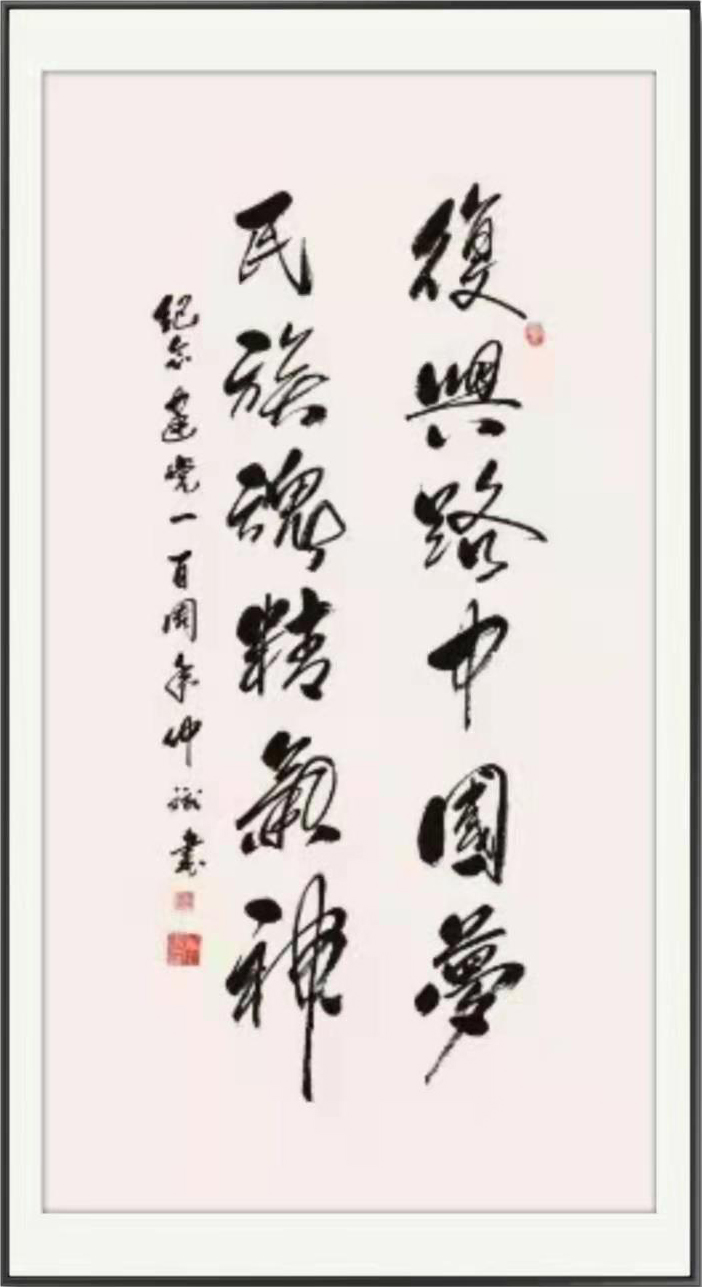 復興路中國夢
民族魂精氣神
纪念建党一百周年仲 書